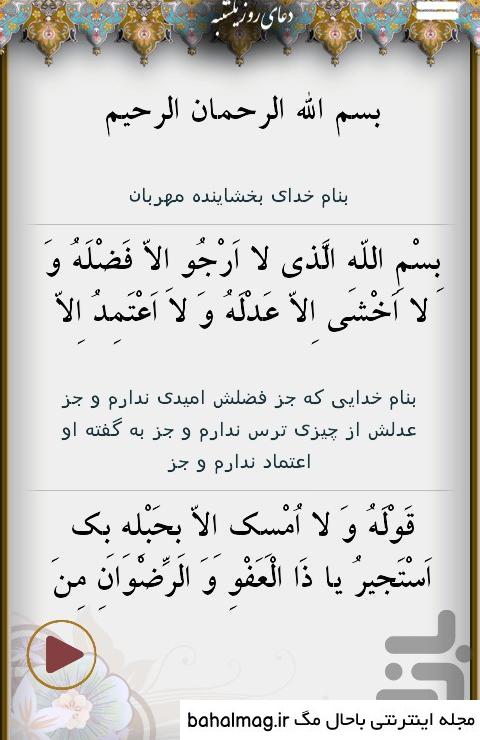 دعای روز یکشنبه
بسم الله الرحمان الرحیم
بنام خدای بخشاینده مهربان
بِسْمِ اللّهِ الَّذی لا اَرْجُو الاّ فَضْلَهُ وَ
لا اَخْشَی اِلاّ عَدْلَهُ وَ لاَ اَعْتَمِدُ اِلاّ
بنام خدایی که جز فضلش امیدی ندارم و جز
عدلش از چیزی ترس ندارم و جز به گفته او
اعتماد ندارم و جز
قَوْلَهُ وَ لا اُمْسِک الاّ بِحَبْلِهِ بِک
اَسْتَجیرُ یا ذَا الْعَفْوِ وَ الَرِّضْوَانَ مِنَ
بازار
مجله اینترنتی باحال مگ bahalmag.ir